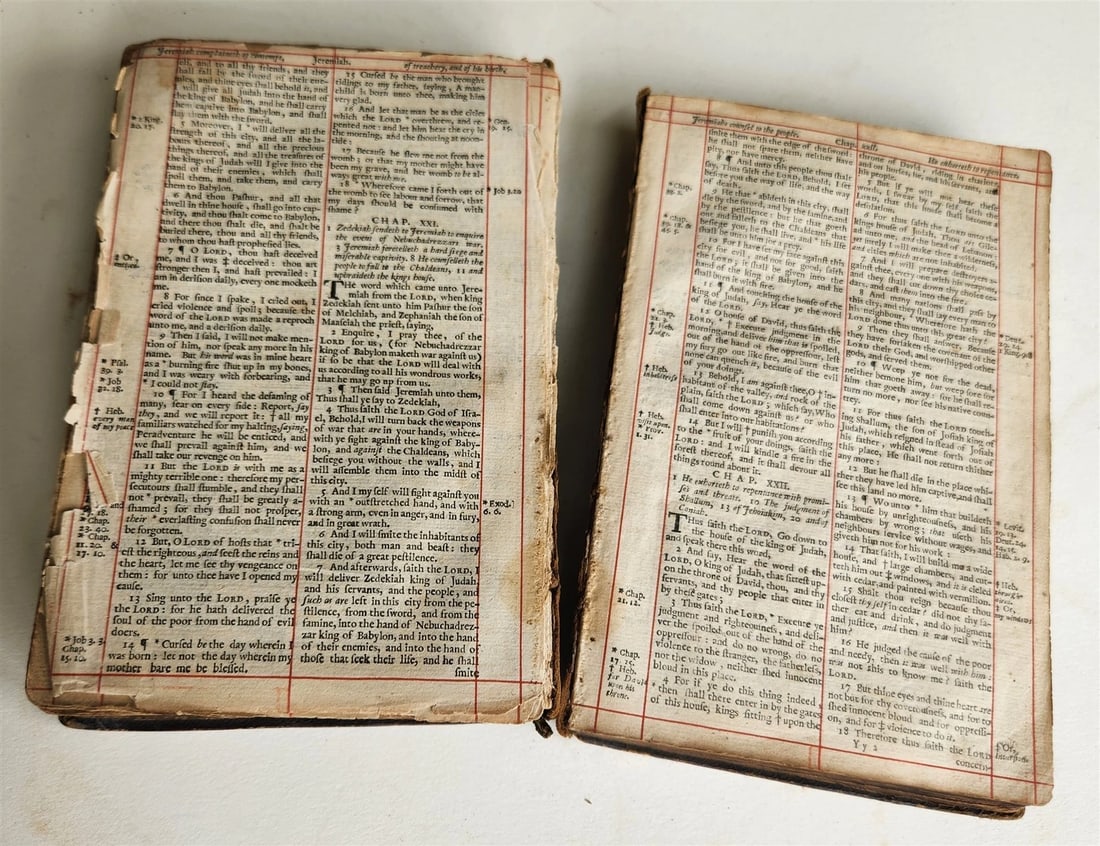 Jeremiah complaineth of contempt,
Jeremiah.
of treachery, and of his birth.
self, and to all thy friends, and they
shall fall by the sword of their ene-
mies, and thine eyes shall behold it, and
will give all Judah into the hand of
the king of Babylon, and he shall carry
them captive into Babylon, and shall
slay them with the sword.
5 Moreover, I * will deliver all the
strength of this city, and all the la-
bours thereof, and all the precious
things thereof, and all the treasures of
the kings of Judah will I give into the
hand of their enemies, which shall
spoil them, and take them, and carry
them to Babylon.
6 And thou Pashur, and all that
dwell in thine house, shall go into cap-
tivity, and thou shalt come to Babylon,
and there thou shalt die, and shalt be
buried there, thou and all thy friends,
to whom thou hast prophesied lies.
7 ¶ O LORD, thou hast deceived
me, and I was ‡ deceived: thou art
stronger then I, and hast prevailed: I
am in derision daily, every one mocketh
me.
8 For since I spake, I cried out, I
cried violence and spoil; because the
word of the LORD was made a reproch
unto me, and a derision daily.
9 Then I said, I will not make men-
tion of him, nor speak any more in his
name. But his word was in mine heart
as a * burning fire shut up in my bones,
and I was weary with forbearing, and
* I could not stay.
10 ¶ For I heard the defaming of
many, fear on every side: Report, say
they, and we will report it: † all my
familiars watched for my halting, saying,
Peradventure he will be enticed, and
we shall prevail against him, and we
shall take our revenge on him.
11 But the LORD is with me as a
mighty terrible one: therefore my per-
secutours shall stumble, and they shall
not * prevail, they shall be greatly a-
shamed; for they shall not prosper,
their * everlasting confusion shall never
be forgotten.
12 But, O LORD of hosts that * tri-
est the righteous, and seest the reins and
the heart, let me see thy vengeance on
them: for unto thee have I opened my
cause.
13 Sing unto the LORD, praise ye
the LORD: for he hath delivered the
soul of the poor from the hand of evil
doers.
14 ¶ * Cursed be the day wherein I
was born: let not the day wherein my
mother bare me be blessed.
* 2 King.
20. 17.
‡ Or,
* Psal.
39. 3.
* Job
32. 18.
† Heb.
every man
of my peace
* Chap.
23. 40.
* Chap.
11. 20. &
17. 10.
* Job 3. 3.
Chap.
15. 10.
15 Cursed be the man who brought
tidings to my father, saying, A man-
child is born unto thee, making him
very glad.
16 And let that man be as the cities
which the LORD * overthrew, and re-
pented not: and let him hear the cry in
the morning, and the shouting at noon-
tide:
17 Because he slew me not from the
womb; or that my mother might have
been my grave, and her womb to be al-
ways great with me.
18 * Wherefore came I forth out of
the womb to see labour and sorrow, that
my days should be consumed with
shame?
CHAP. XXI.
1 Zedekiah sendeth to Jeremiah to enquire
the event of Nebuchadrezzars war.
3 Jeremiah foretelleth a hard siege and
miserable captivity. 8 He counselleth the
people to fall to the Chaldeans, 11 and
upbraideth the kings house.
THe word which came unto Jere-
miah from the LORD, when king
Zedekiah sent unto him Pashur the son
of Melchiah, and Zephaniah the son of
Maaseiah the priest, saying,
2 Enquire, I pray thee, of the
LORD for us, (for Nebuchadrezzar
king of Babylon maketh war against us)
if so be that the LORD will deal with
us according to all his wondrous works,
that he may go up from us.
3 ¶ Then said Jeremiah unto them,
Thus shall ye say to Zedekiah,
4 Thus saith the LORD God of Isra-
el, Behold, I will turn back the weapons
of war that are in your hands, where-
with ye fight against the king of Baby-
lon, and against the Chaldeans, which
besiege you without the walls, and I
will assemble them into the midst of
this city.
5 And I my self will fight against you
with an * outstretched hand, and with
a strong arm, even in anger, and in fury,
and in great wrath.
6 And I will smite the inhabitants of
this city, both man and beast: they
shall die of a great pestilence.
7 And afterwards, saith the LORD, I
will deliver Zedekiah king of Judah,
and his servants, and the people, and
such as are left in this city from the pe-
stilence, from the sword, and from the
famine, into the hand of Nebuchadrez-
zar king of Babylon, and into the hand
of their enemies, and into the hand of
those that seek their life, and he shall
smite
* Gen.
19. 25.
* Job 3.20
* Exod.
6. 6.
Jeremiahs counsel to the people.
Chap. xxii.
He exhorteth to repentance.
smite them with the edge of the sword:
he shall not spare them, neither have
pity, nor have mercy.
8 ¶ And unto this people thou shalt
say, Thus saith the LORD, Behold, I set
before you the way of life, and the way
of death.
9 He that * abideth in this city, shall
die by the sword, and by the famine, and
by the pestilence: but he that goeth
out and falleth to the Chaldeans that
besiege you, he shall live, and * his life
shall be unto him for a prey.
10 For I have set my face against this
city for evil, and not for good, saith
the LORD; it shall be given into the
hand of the king of Babylon, and he
shall burn it with fire.
11 ¶ And touching the house of the
king of Judah, say, Hear ye the word
of the LORD.
12 O house of David, thus saith the
LORD, * † Execute judgment in the
morning, and deliver him that is spoiled,
out of the hand of the oppressour, lest
my fury go out like fire, and burn that
none can quench it, because of the evil
of your doings.
13 Behold, I am against thee, O † in-
habitant of the valley, and rock of the
Plain, saith the LORD; which say, Who
shall come down against us? or who
shall enter into our habitations?
14 But I will † punish you according
to the * fruit of your doings, saith the
LORD: and I will kindle a fire in the
forest thereof, and it shall devour all
things round about it.
CHAP. XXII.
1 He exhorteth to repentance with promi-
ses and threats. 10 The judgment of
Shallum, 13 of Jehoiakim, 20 and of
Coniah.
THus saith the LORD, Go down to
the house of the king of Judah,
and speak there this word,
2 And say, Hear the word of the
LORD, O king of Judah, that sittest up-
on the throne of David, thou, and thy
servants, and thy people that enter in
by these gates;
3 Thus saith the LORD, * Execute ye
judgment and righteousness, and deli-
ver the spoiled out of the hand of the
oppressour: and do no wrong, do no
violence to the stranger, the fatherless,
nor the widow, neither shed innocent
blood in this place.
4 For if ye do this thing indeed,
* then shall there enter in by the gates
of this house, kings sitting † upon the
* Chap.
* Chap.
* Chap.
† Heb.
† Heb.
† Heb.
* Prov.
1. 31.
* Chap.
21. 12.
* Chap.
17. 25.
† Heb.
for David
upon his
throne.
throne of David, riding in chariots
and on horses, he, and his servants, and
his people.
5 But if ye will not hear these
words, I swear by my self, saith the
LORD, that this house shall become a
desolation.
6 For thus saith the LORD unto the
kings house of Judah, Thou art Gilead
unto me, and the head of Lebanon:
yet surely I will make thee a wilderness,
and cities which are not inhabited.
7 And I will prepare destroyers a-
gainst thee, every one with his weapons,
and they shall cut down thy choice ce-
dars, and cast them into the fire.
8 And many nations shall pass by
this city, and they shall say every man to
his neighbour, * Wherefore hath the
LORD done thus unto this great city?
9 Then they shall answer, Because
they have forsaken the covenant of the
LORD their God, and worshipped other
gods, and served them.
10 ¶ Weep ye not for the dead,
neither bemone him, but weep sore for
him that goeth away: for he shall re-
turn no more, nor see his native coun-
trey.
11 For thus saith the LORD touch-
ing Shallum, the son of Josiah king of
Judah, which reigned in stead of Josiah
his father, which went forth out of
this place, He shall not return thither
any more:
12 But he shall die in the place whi-
ther they have led him captive, and shall
see this land no more.
13 ¶ Wo unto * him that buildeth
his house by unrighteousness, and his
chambers by wrong: that useth his
neighbours service without wages, and
giveth him not for his work:
14 That saith, I will build me a wide
house, and † large chambers, and cut-
teth him out ‡ windows, and it is cieled
with cedar, and painted with vermilion.
15 Shalt thou reign because thou
closest thy self in cedar? did not thy fa-
ther eat and drink, and do judgment
and justice, and then it was well with
him?
16 He judged the cause of the poor
and needy, then it was well with him:
was not this to know me? saith the
LORD.
17 But thine eyes and thine heart are
not but for thy covetousness, and for to
shed innocent blood, and for oppressi-
on, and for ‡ violence to do it.
18 Therefore thus saith the LORD
Y y 2
concern-
* Deut.
29. 24.
1 King. 9.8
* Levit.
19. 13.
Deut. 24.
14, 15.
Hab. 2. 9.
† Heb.
‡ Or,
my windows
‡ Or,